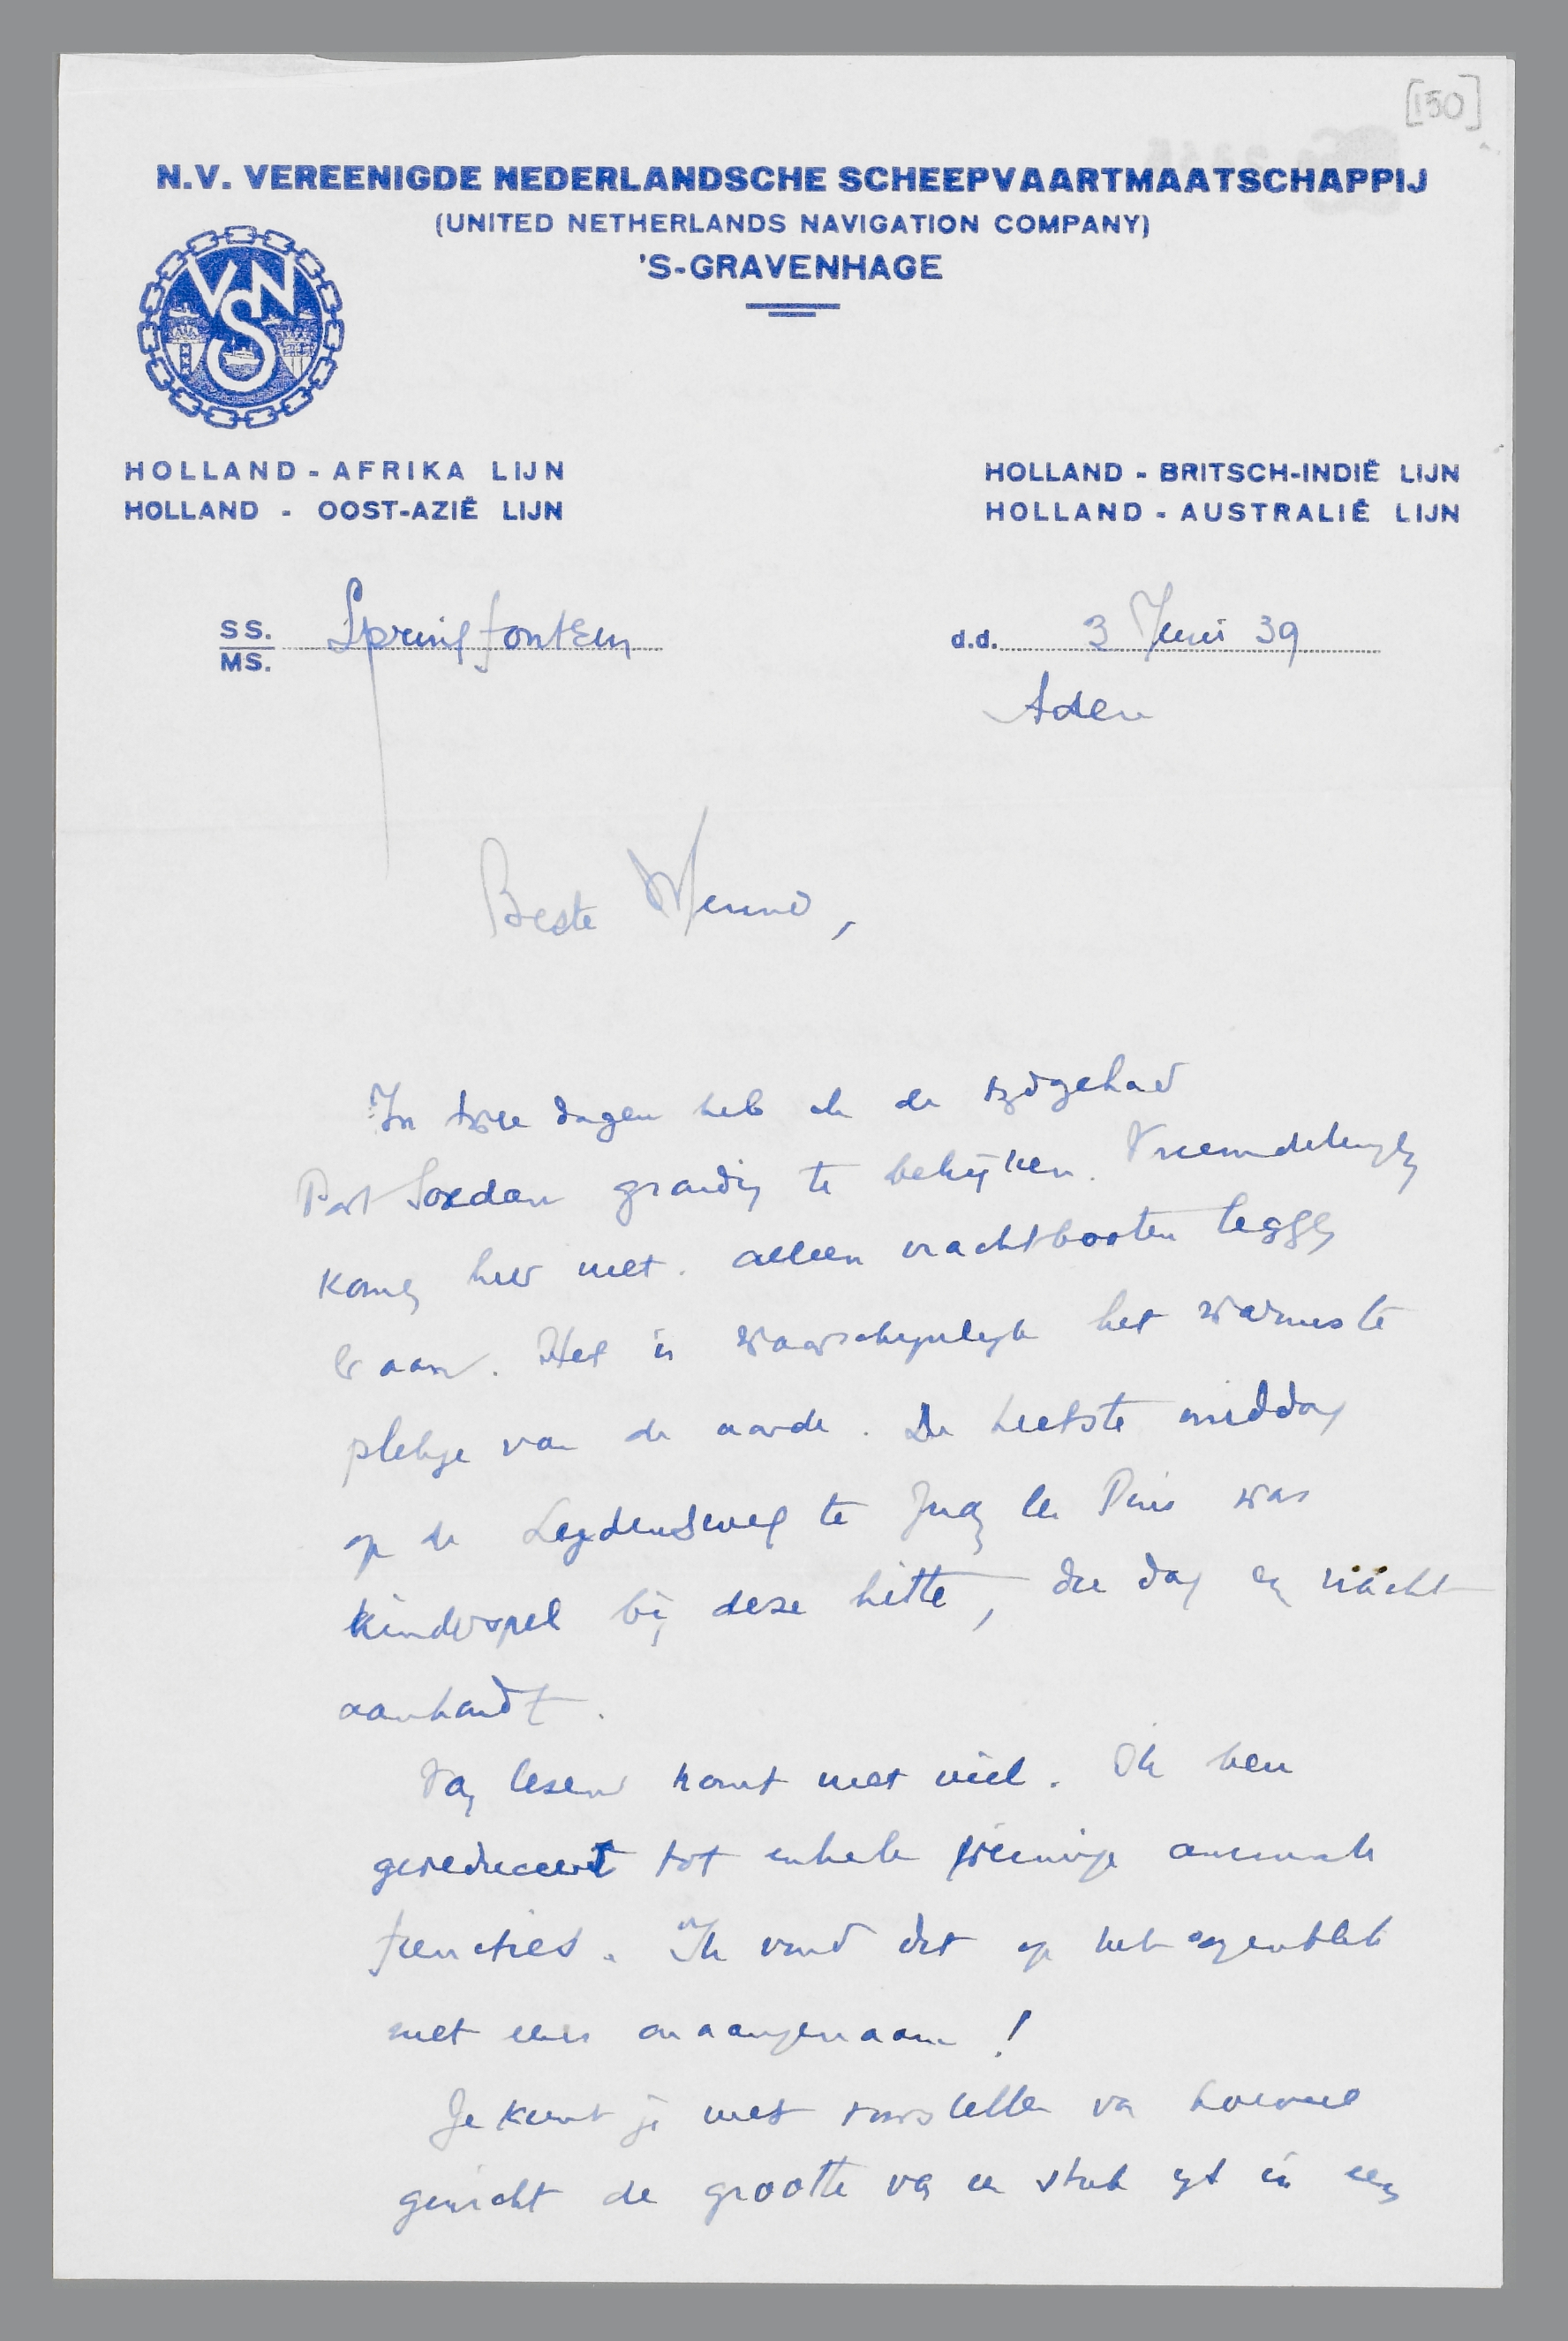 [150]
N.V. VEREENIGDE NEDERLANDSCHE SCHEEPVAARTMAATSCHAPPIJ
(UNITED NETHERLANDS NAVIGATION COMPANY)
'S-GRAVENHAGE
VNS
HOLLAND - AFRIKA LIJN
HOLLAND - OOST-AZIË LIJN
HOLLAND - BRITSCH-INDIË LIJN
HOLLAND - AUSTRALIË LIJN
SS. Springfontein
MS.
d.d. 3 Juni 39
Aden
Beste Menno,
In twee dagen heb ik de tijd gehad
Port Soedan grondig te bekijken. Vreemdelingen
komen hier niet. alleen vrachtbooten leggen
er aan. Het is waarschijnlijk het warmste
plekje van de aarde. De heetste middag
op de Leydenseweg te Juan les Pins was
kinderspel bij deze hitte, die dag en nacht
aanhoudt.
Van lezen komt niet veel. Ik ben
gereduceerd tot enkele weinige animale
functies. Ik vind dat op het oogenblik
niet eens onaangenaam!
Je kunt je niet voorstellen van hoeveel
gewicht de grootte van een stuk ijs in een